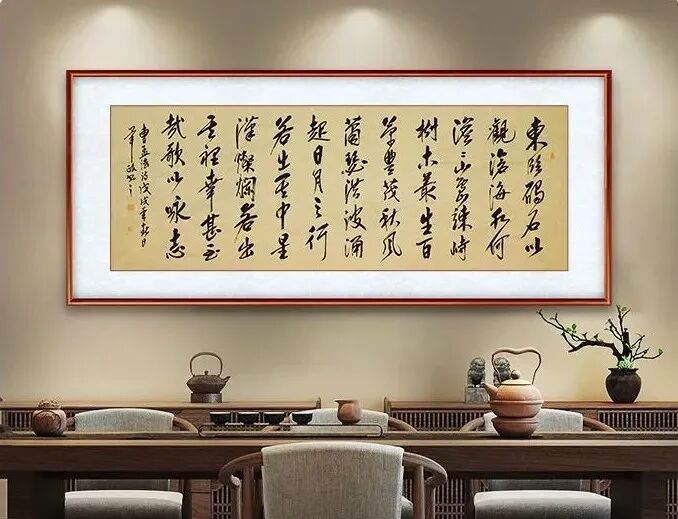 東臨碣石以
觀滄海水何
澹々山島竦峙
樹木叢生百
草豐茂秋風
蕭瑟洪波涌
起日月之行
若出其中星
漢燦爛若出
其裡幸甚至
哉歌以詠志
曹孟德詩戊戌年春日